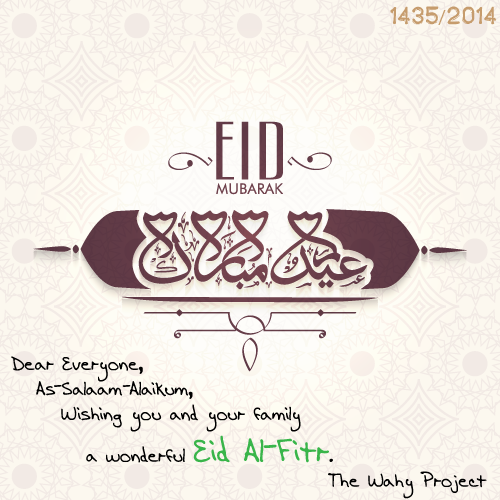 1435/2014
EID
MUBARAK
عيد مبارك
Dear Everyone,
As-Salaam-Alaikum,
Wishing you and your family
a wonderful Eid Al-Fitr.
The Wahy Project